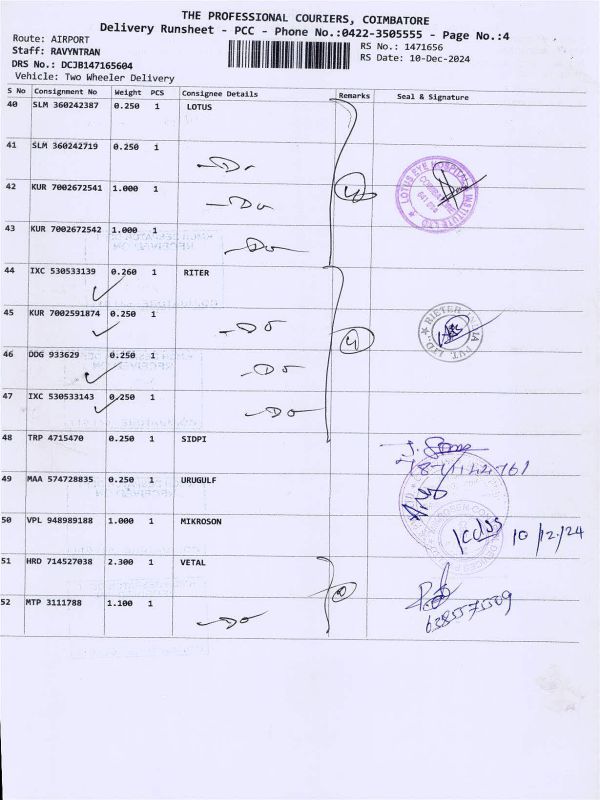 THE PROFESSIONAL COURIERS, COIMBATORE
Delivery Runsheet - PCC - Phone No.:0422-3505555 - Page No.:4
Route: AIRPORT
Staff: RAVYNTRAN
RS No.: 1471656
DRS No.: DCJB147165604
RS Date: 10-Dec-2024
Vehicle: Two Wheeler Delivery
S No Consignment No Weight PCS Consignee Details Remarks Seal & Signature
40 SLM 360242387 0.250 1 LOTUS
41 SLM 360242719 0.250 1 Do
42 KUR 7002672541 1.000 1 Do
4
LOTUS EYE HOSPITAL INSTITUTE LTD
43 KUR 7002672542 1.000 1 Do
44 IXC 530533139 0.260 1 RITER
45 KUR 7002591874 0.250 1 Do
4
RIETER INDIA PVT. LTD.,
46 DDG 933629 0.250 1 Do
47 IXC 530533143 0.250 1 Do
48 TRP 4715470 0.250 1 SIDPI
49 MAA 574728835 0.250 1 URUGULF
50 VPL 948989188 1.000 1 MIKROSON
10/12/24
51 HRD 714527038 2.300 1 VETAL
52 MTP 3111788 1.100 1 Do